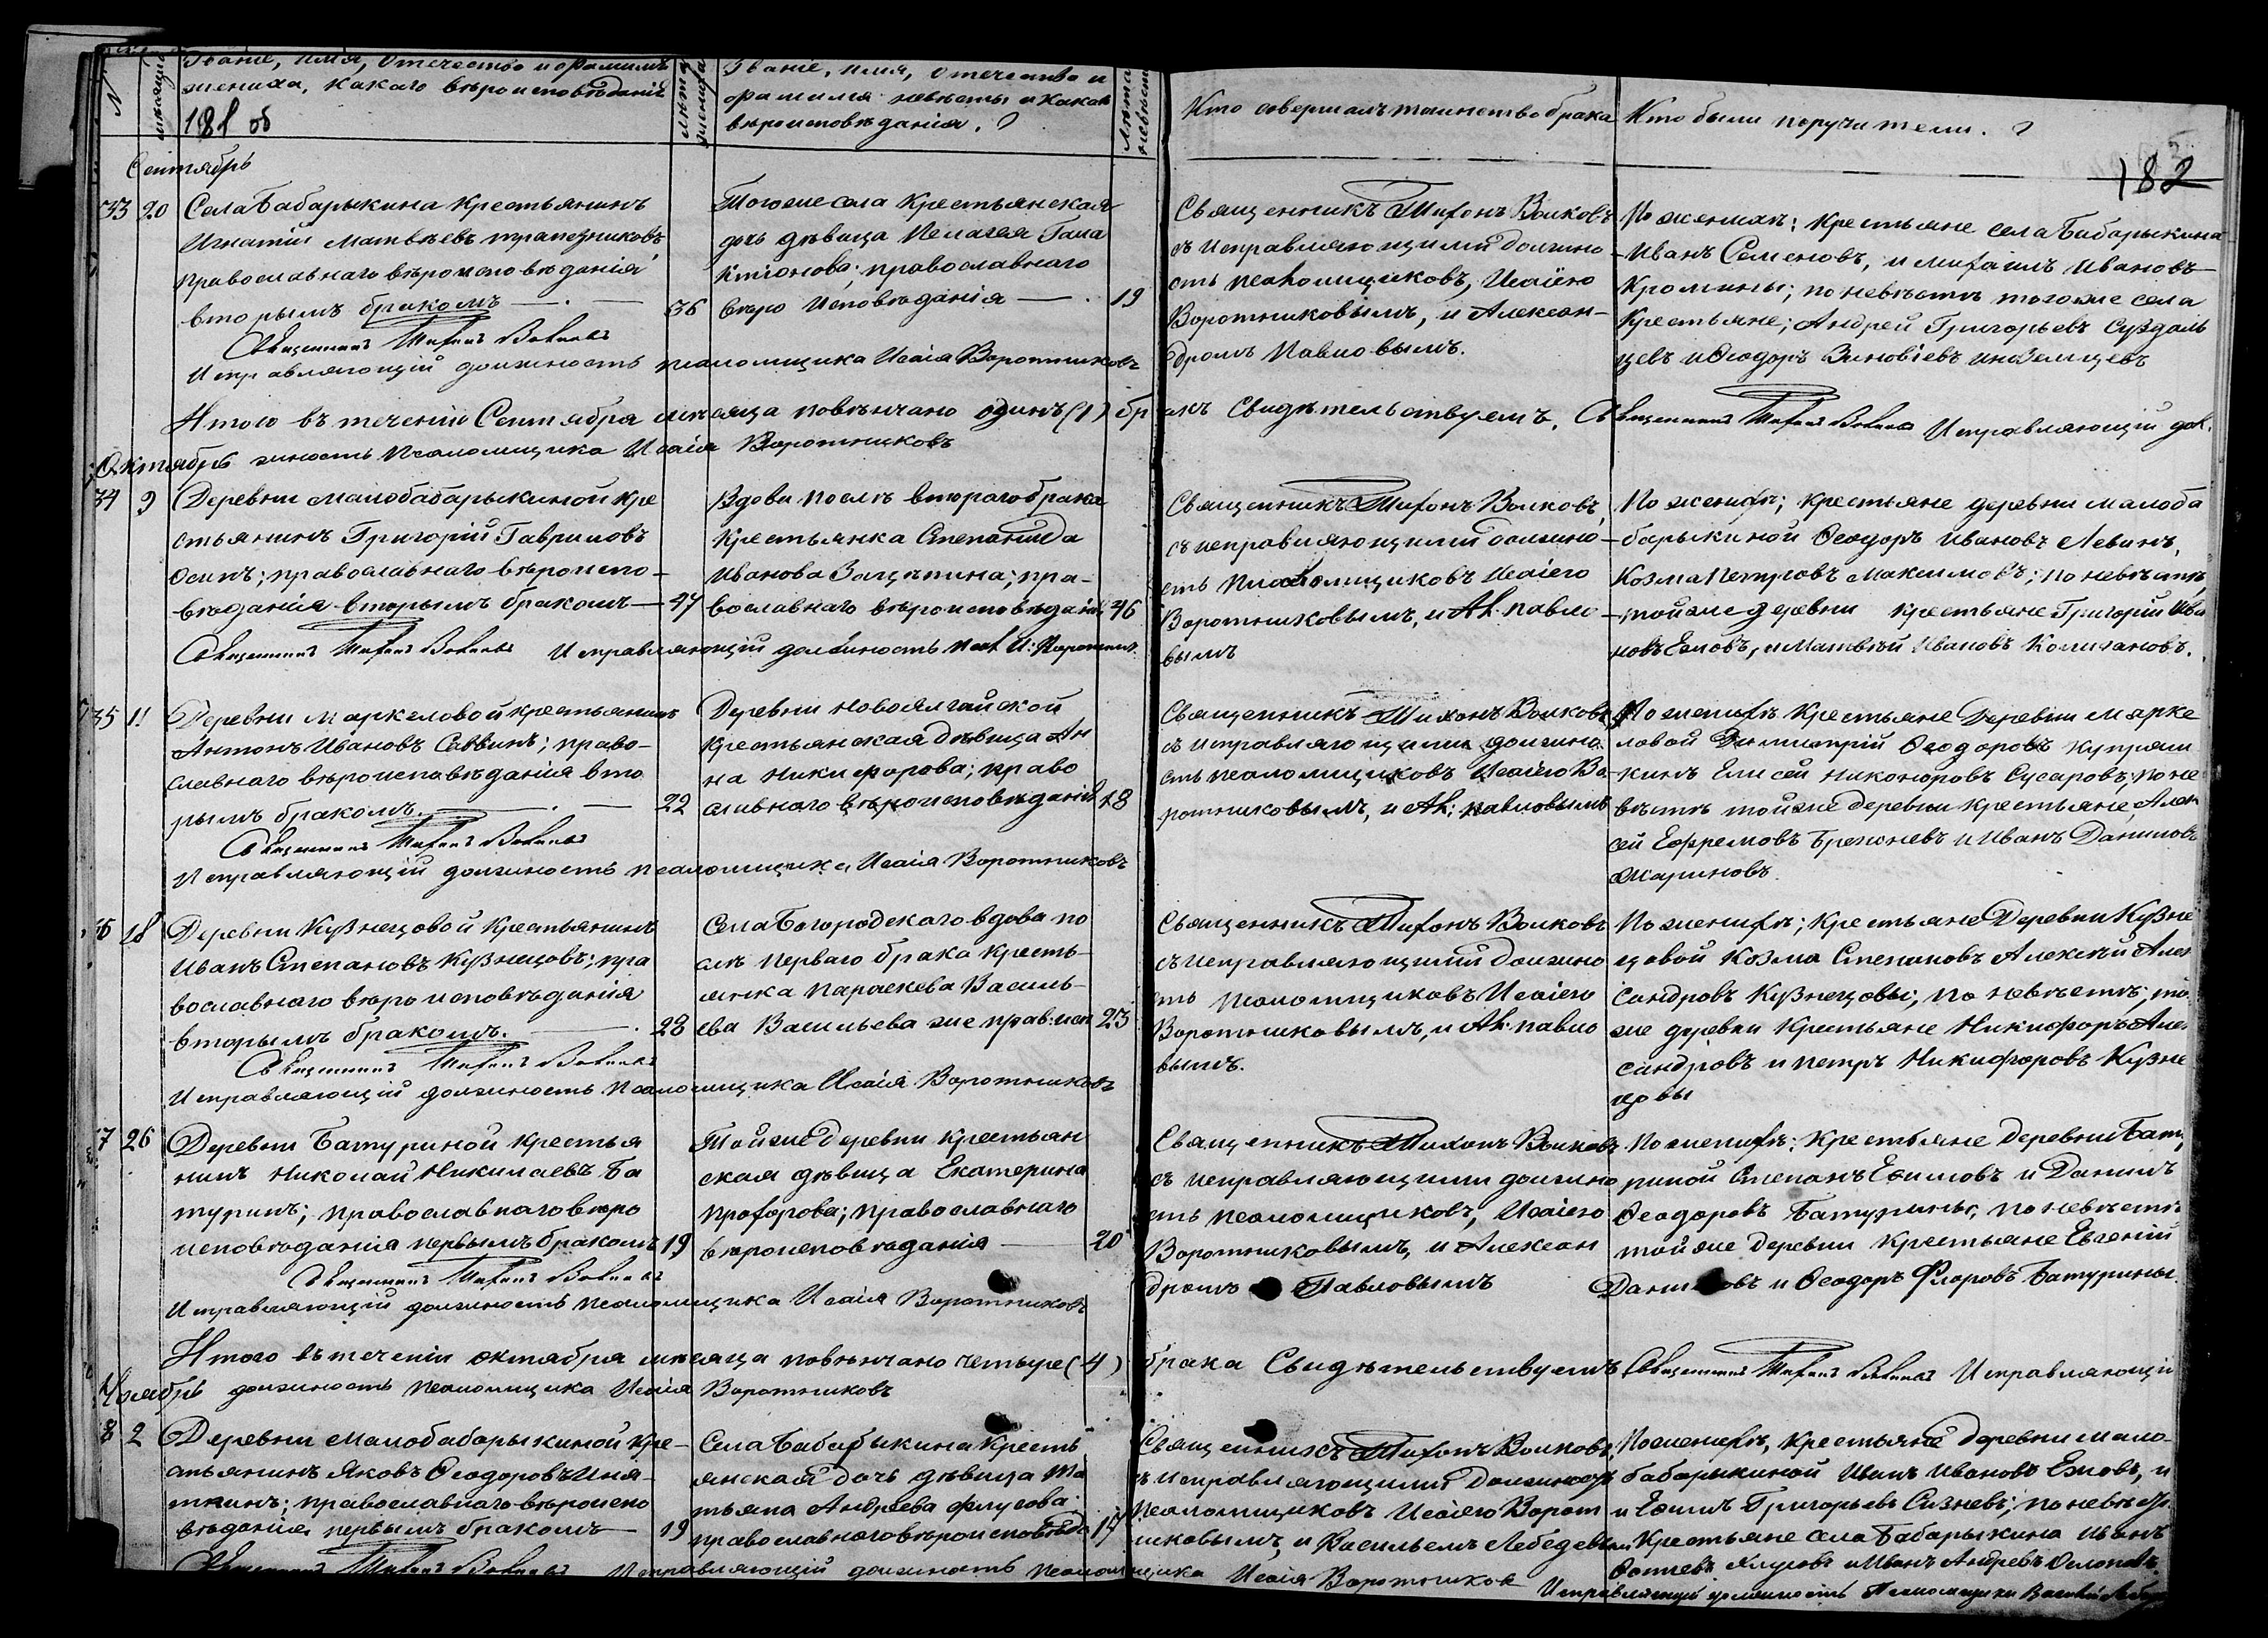 N
мѣсяцъ
Званіе, имя, отечество и фамилія
жениха, какого вѣроисповѣданія
181 об
лѣта жениха
Званіе, имя, отечество и
фамилія невѣсты и какого
вѣроисповѣданія.
лѣта невѣсты
Кто совершалъ таинство брака
Кто были поручители.
182
Сентябрь
33 20
Села Бабарыкина крестьянинъ
Игнатій Матвѣевъ Трапезниковъ
православнаго вѣроисповѣданія
вторымъ бракомъ — . —
36
Тогоже села крестьянская
дочь дѣвица Пелагея Гала
ктіонова; православнаго
вѣроисповѣданія — .
19
Священникъ Тихонъ Волковъ
съ исправляющими должно-
сть псаломщиковъ, Исаіею
Воротниковымъ, и Алексан-
дромъ Павловымъ.
По женихѣ: крестьяне села Бабарыкина
Иванъ Семеновъ, и Михаилъ Ивановъ
Кромины; по невѣстѣ тогоже села
крестьяне; Андрей Григорьевъ Суздаль
цевъ и Ѳеодоръ Зиновіевъ Иноземцевъ
Священникъ Тихонъ Волковъ
Исправляющій должность псаломщика Исаія Воротниковъ
Итого въ теченіи Сентября мѣсяца повѣнчано одинъ (1) бракъ Свидѣтельствуемъ, Священникъ Тихонъ Волковъ Исправляющій дол.
Октябрь жность Псаломщика Исаія Воротниковъ
34 9
Деревни Малобабарыкиной кре
стьянинъ Григорій Гавриловъ
Осипъ; православнаго вѣроиспо-
вѣданія вторымъ бракомъ —
47
Вдова послѣ втораго брака
крестьянка Степанида
Иванова Защепина; пра-
вославнаго вѣроисповѣданія
46
Священникъ Тихонъ Волковъ,
съ исправляющими должно-
сть псаломщиковъ Исаіею
Воротниковымъ, и Ал. Павло-
вымъ
По женихѣ; крестьяне деревни Малоба
барыкиной Ѳеодоръ Ивановъ Левинъ,
Козма Петровъ Максимовъ; по невѣстѣ,
тойже деревни крестьяне Григорій Ива
новъ Ежовъ, и Матвѣй Ивановъ Колигановъ.
Священникъ Тихонъ Волковъ Исправляющій должность Псал. И: Воротник.
35 11
Деревни Маркеловой крестьянинъ
Антонъ Ивановъ Саввинъ; право-
славнаго вѣроисповѣданія вто
рымъ бракомъ. — . —
22
Деревни Новоялгайской
крестьянская дѣвица Ан
на Никифорова; право
славнаго вѣроисповѣданія
18
Священникъ Тихонъ Волковъ
съ исправляющими должно
сть псаломщиковъ Исаіею Во-
ротниковымъ, и Ал: Павловымъ
По женихѣ крестьяне Деревни Марке
ловой Димитрій Ѳеодоровъ Купряш
кинъ Елисей Никоноровъ Сусаровъ; по не
вѣстѣ тойже деревни крестьяне, Алек
сей Ефремовъ Брехневъ и Иванъ Даниловъ
Жариновъ.
Священникъ Тихонъ Волковъ
Исправляющій должность псаломщика Исаія Воротниковъ
36 18
Деревни Кузнецовой Крестьянинъ
Иванъ Степановъ Кузнецовъ; пра
вославнаго вѣроисповѣданія
вторымъ бракомъ. — .
28
Села Богородскаго вдова по
слѣ перваго брака кресть-
янка Параскева Василь-
ева Васильева же прав: исп
25
Священникъ Тихонъ Волковъ
съ исправляющими должно
сть псаломщиковъ Исаіею
Воротниковымъ, и Ал. Павло
вымъ.
По женихѣ; крестьяне Деревни Кузне
цовой Козма Степановъ Алексѣй Алек
сандровъ Кузнецовы; по невѣстѣ; той
же деревни крестьяне Никифоръ Алек
сандровъ и Петръ Никифоровъ Кузне
цовы
Священникъ Тихонъ Волковъ
Исправляющій должность Псаломщика Исаія Воротниковъ
7 26
Деревни Батуриной крестья
нинъ Николай Николаевъ Ба
туринъ; православнаго вѣро
исповѣданія первымъ бракомъ
19
Тойже деревни крестьян
ская дѣвица Екатерина
Прохорова; православнаго
вѣроисповѣданія —
20
Священникъ Тихонъ Волковъ
съ исправляющими должно
сть псаломщиковъ, Исаіею
Воротниковымъ, и Алексан
дромъ Павловымъ
По женихѣ: крестьяне деревни Бату
риной Степанъ Ефимовъ и Данилъ
Ѳеодоровъ Батурины; по невѣстѣ
тойже деревни крестьяне Евгеній
Даниловъ и Ѳеодоръ Флоровъ Батурины.
Священникъ Тихонъ Волковъ
Исправляющій должность псаломщика Исаія Воротниковъ
Итого въ теченіи октября мѣсяца повѣнчано четыре (4) брака Свидѣтельствуемъ Священникъ Тихонъ Волковъ Исправляющій
Ноябрь должность псаломщика Исаія Воротниковъ
8 2
Деревни Малобабарыкиной кре-
стьянинъ Яковъ Ѳеодоровъ Иня-
ткинъ; православнаго вѣроиспо
вѣданія первымъ бракомъ —
19
Села Бабарыкина кресть
янская дочь дѣвица Та
тьяна Андреева Флусова;
православнаго вѣроисповѣда
17
Священникъ Тихонъ Волковъ,
съ исправляющими должность
псаломщиковъ Исаіею Ворот
никовымъ, и Васильемъ Лебедевым
По женихѣ, крестьяне деревни Мало-
бабарыкиной Иванъ Ивановъ Ежовъ, и
и Ефимъ Григорьевъ Сизневъ; по невѣстѣ
крестьяне села Бабарыкина Иванъ
Фотіевъ Хлусовъ и Иванъ Андреевъ
Священникъ Тихонъ Волковъ Исправляющій должность псаломщика Исаія Воротников Исправляющій должность Псаломщика Василій Лебед